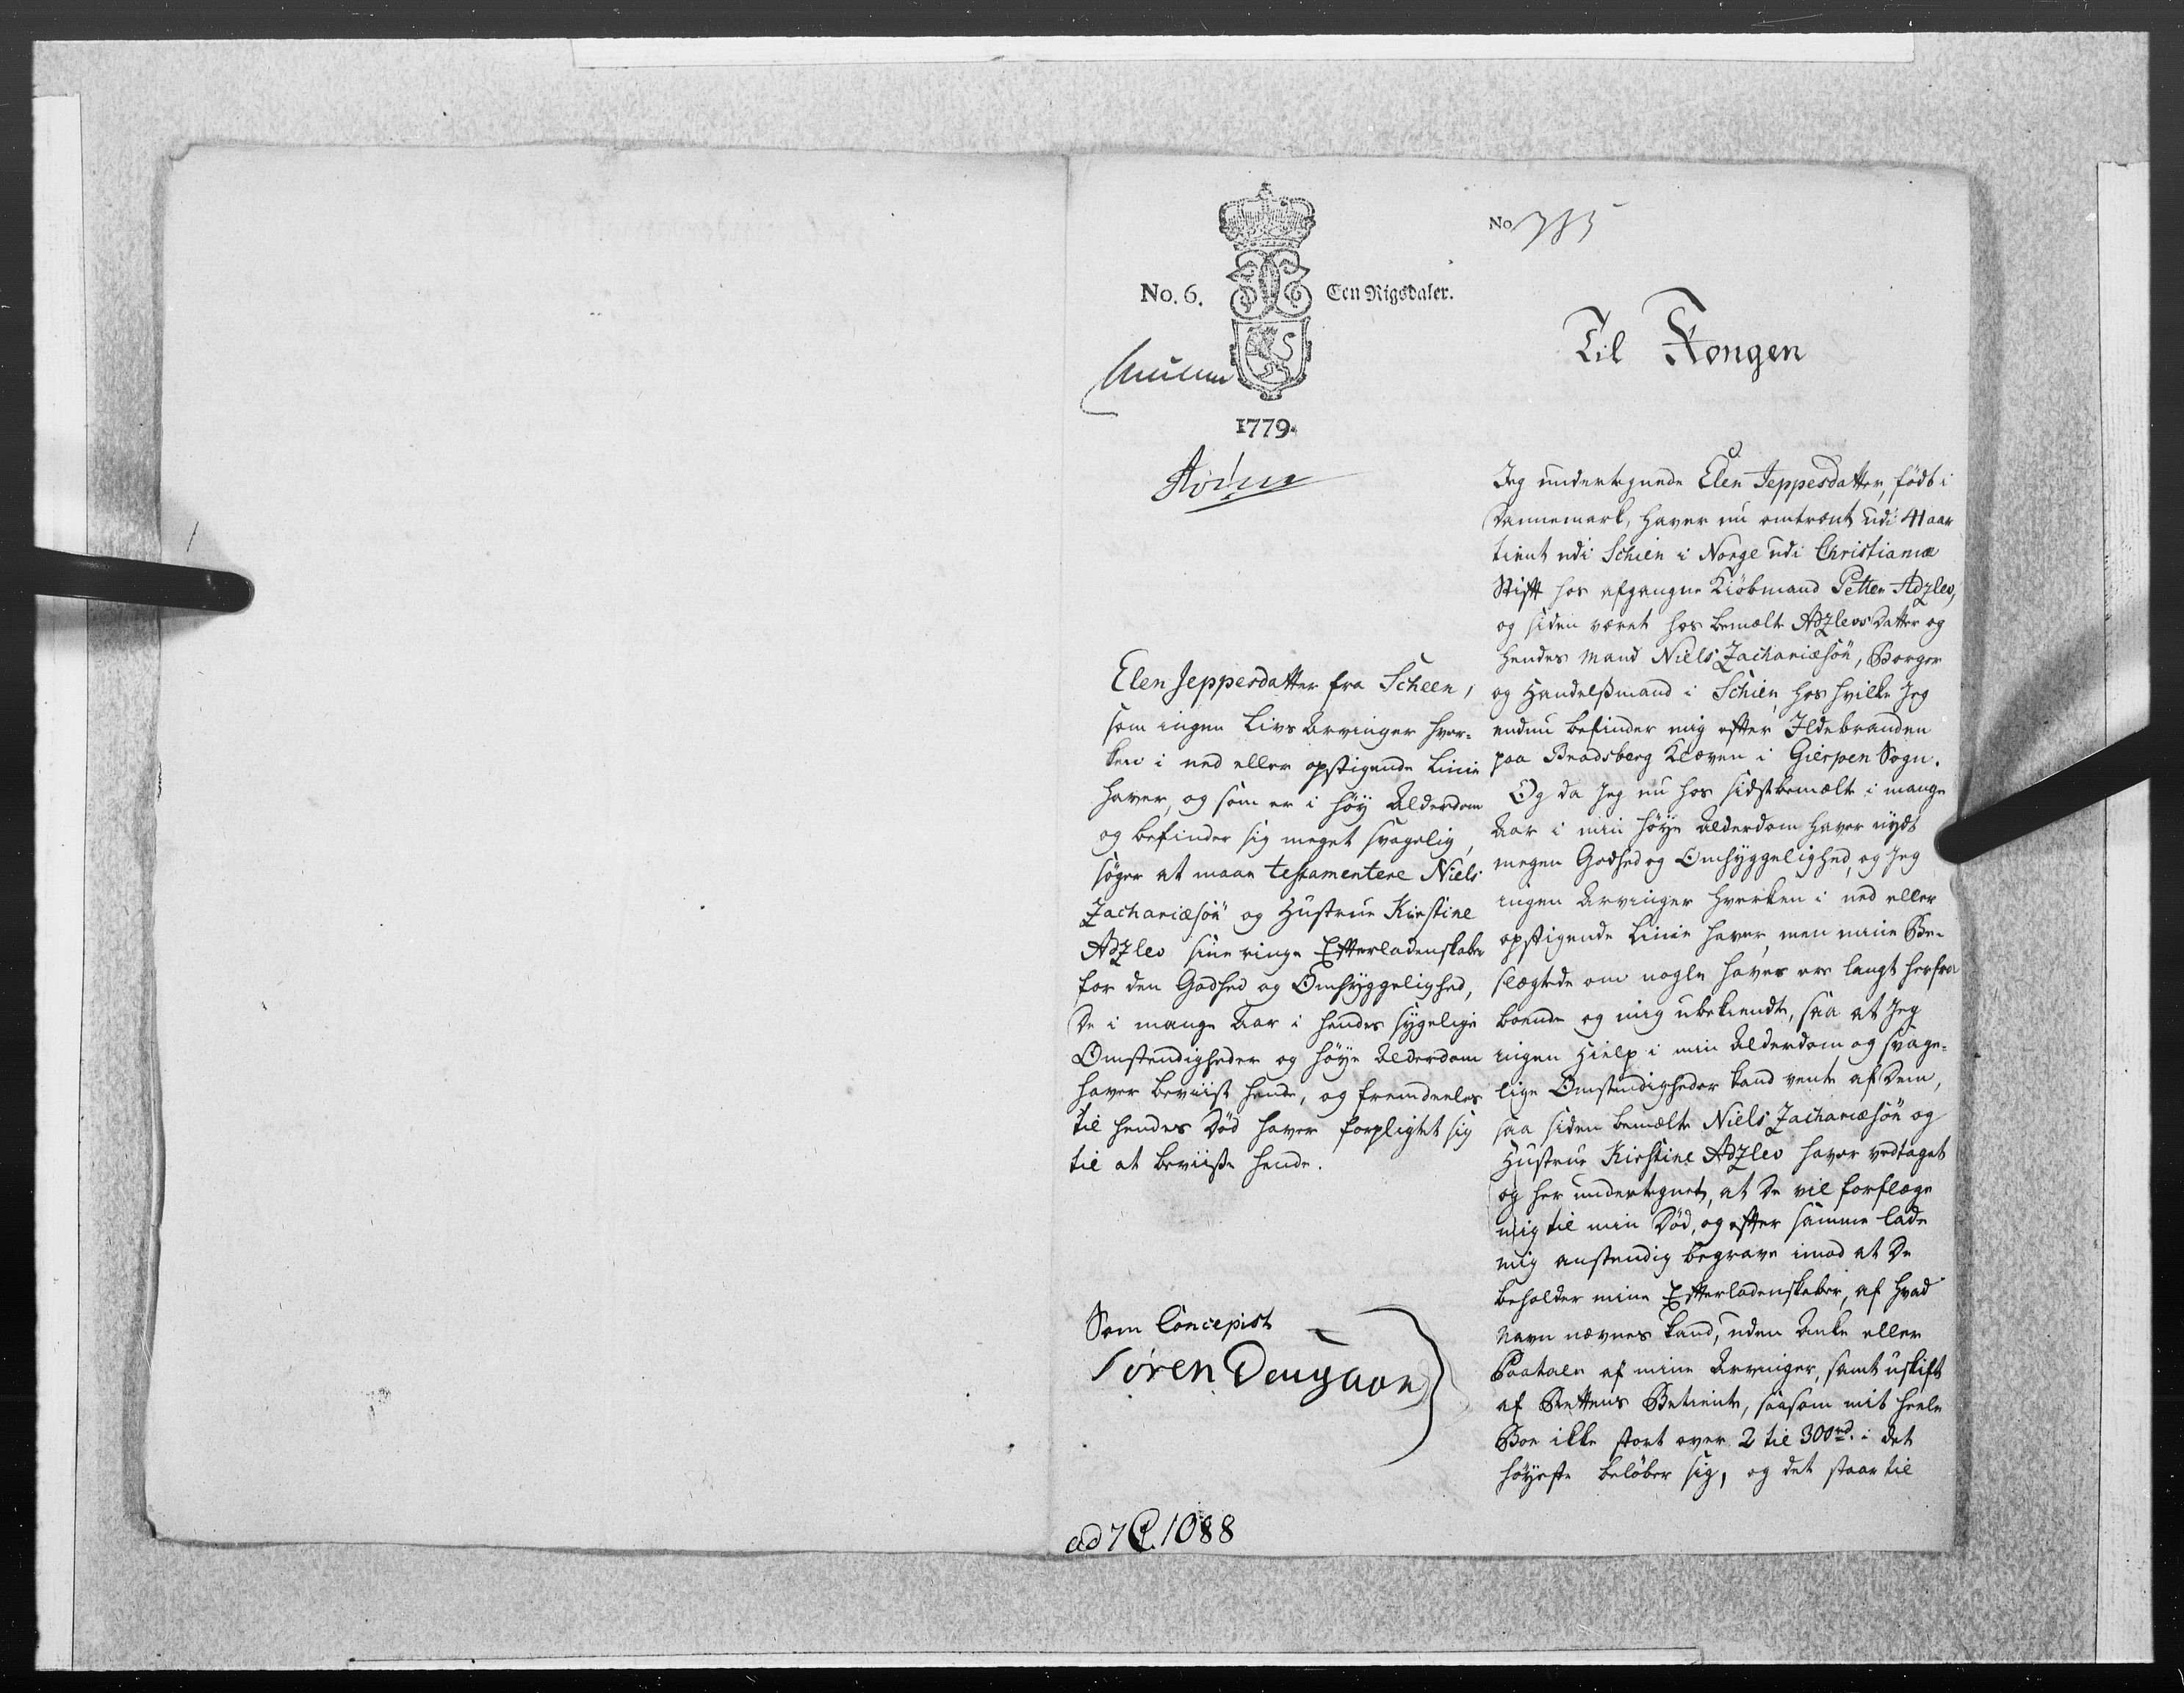 No. 6. Een Rigsdaler.
1779.
No 785
Til Kongen
Elen Jeppesdatter fra Scheen,
som ingen Livs Arvinger hver-
ken i ned eller opstigende Linie
haver, og som er i høy Alderdom
og befinder sig meget svagelig,
søger at maae testamentere Niels
Zachariæsön og Hustrue Kirstine
Adzlev sine ringe Efterladenskaber
for den Godhed og Omhyggelighed,
De i mange Aar i hendes sygelige
Omstendigheder og høye Alderdom
haver beviist hende, og fremdeeles
til hendes Død haver forpligtet sig
til at beviise hende.
Som Concepist
Sören Daugaard
ad 7 C. 1088
Jeg undertegnede Elen Jeppesdatter, født i
Dannemark, haver nu omtrent udi 41 aar
tient udi Schien i Norge udi Christianiæ
Stift hos afgangne Kiöbmand Petter Adzlev,
og siden været hos bemælte Adzlevs Datter og
hendes Mand Niels Zachariæsön, Borger
og Handelsmand i Schien, hos hvilke Jeg
endnu befinder mig efter Ildebranden
paa Bradsberg Kleven i Gierpen Sogn.
Og da Jeg nu hos sidstbemælte i mange
Aar i min høye Alderdom haver nydt
megen Godhed og Omhyggelighed, og Jeg
ingen Arvinger hverken i ned eller
opstigende Linie haver, men mine Be-
slægtede om nogle haves ere langt herfra
boende og mig ubekiendte, saa at Jeg
ingen Hielp i min Alderdom og svage-
lige Omstendigheder kand vente af Dem,
saa siden bemælte Niels Zachariæsön og
Hustrue Kirstine Adzlev haver vedtaget
og her undertegnet, at De vil forflege
mig til min Død, og efter samme lade
mig anstendig begrave imod at De
beholder mine Efterladenskaber, af hvad
Navn nævnes kand, uden Anke eller
Paatale af mine Arvinger, samt uskift
af Rettens Betiente, saasom mit heele
Boe ikke stort over 2 til 300 rd. i det
høyeste beløber sig, og det staar til